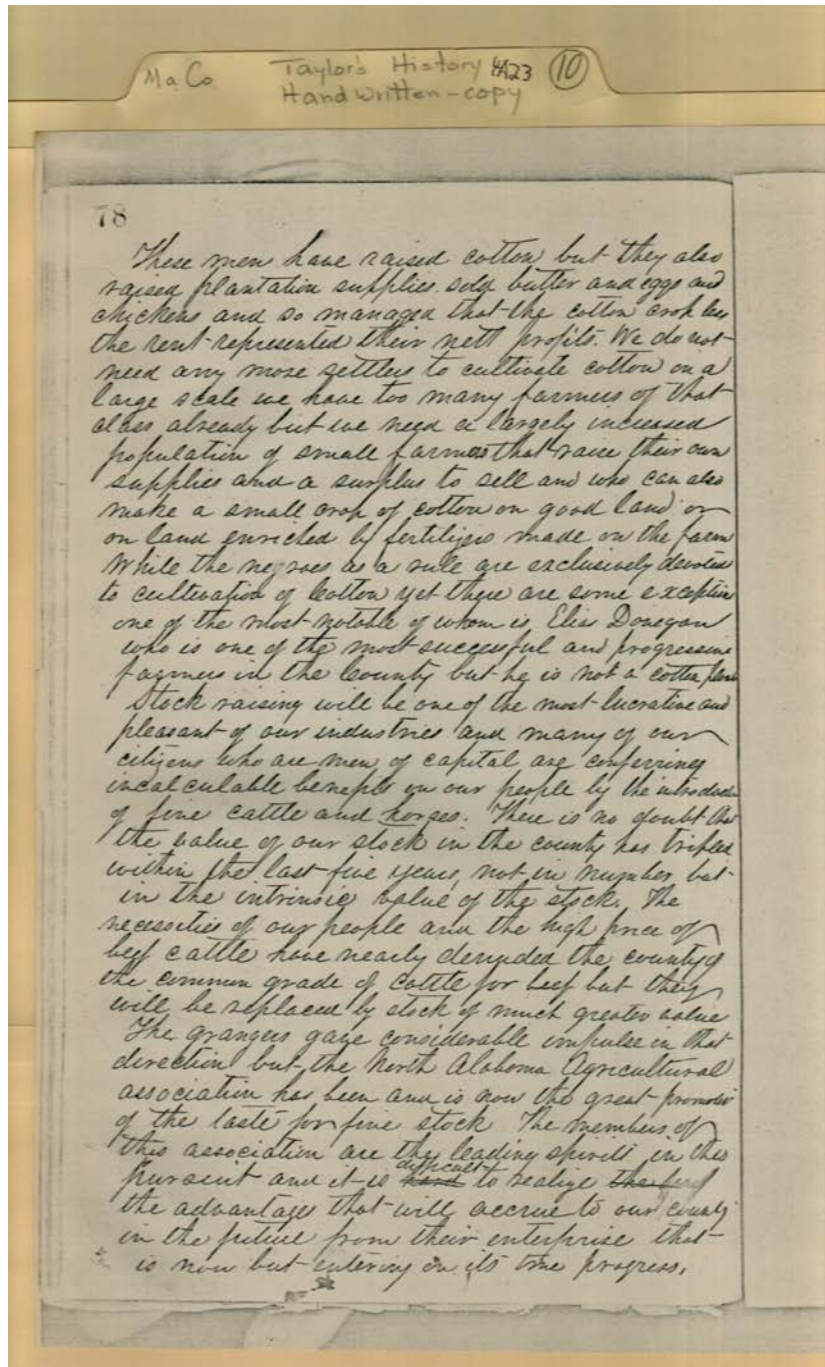 Ma. Co. Taylor's History 4A23 10
Handwritten-copy
78
These men have raised cotton but they also
raised plantation supplies. sold butter and eggs and
chickens and so managed that the cotton crop less
the rent represented their nett profits. We do not
need any more settlers to cultivate cotton on a
large scale we have too many farmers of that
class already but we need a largely increased
population of small farmers that raise their own
supplies and a surplus to sell and who can also
make a small crop of cotton on good land or
on land enriched by fertilizers made on the farm
While the negroes as a rule are exclusively devoted
to cultivation of Cotton yet there are some exception
one of the most notable of whom is Elias Donegan
who is one of the most successful and progressive
farmers in the County but he is not a cotton
Stock raising will be one of the most lucrative and
pleasant of our industries and many of our
citizens who are men of capital are conferring
incalculable benefits on our people by the introduction
of fine cattle and horses. There is no doubt that
the value of our stock in the county has tripled
within the last five years, not in number but
in the intrinsic value of the stock. The
necessities of our people and the high price of
beef cattle have nearly denuded the county of
the common grade of cattle for beef but they
will be replaced by stock of much greater value
The grangers gave considerable impulse in that
direction but the North Alabama Agricultural
association has been and is now the great promoter
of the taste for fine stock The members of
this association are the leading spirits in this
pursuit and it is hard difficult to realize the
the advantages that will accrue to our county
in the future from their enterprise that
is now but entering on its true progress.